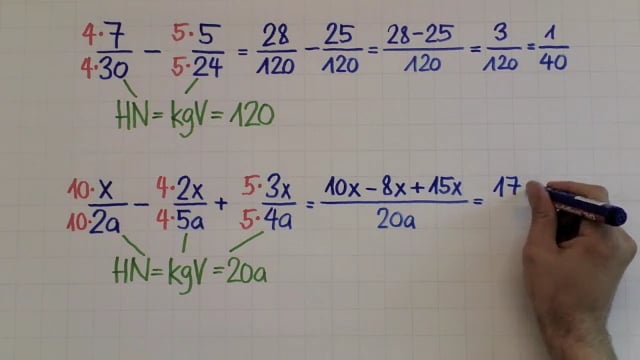 4·7/4·30 − 5·5/5·24 = 28/120 − 25/120 = 28−25/120 = 3/120 = 1/40
HN = kgV = 120
10·x/10·2a − 4·2x/4·5a + 5·3x/5·4a = 10x−8x+15x/20a = 17
HN = kgV = 20a